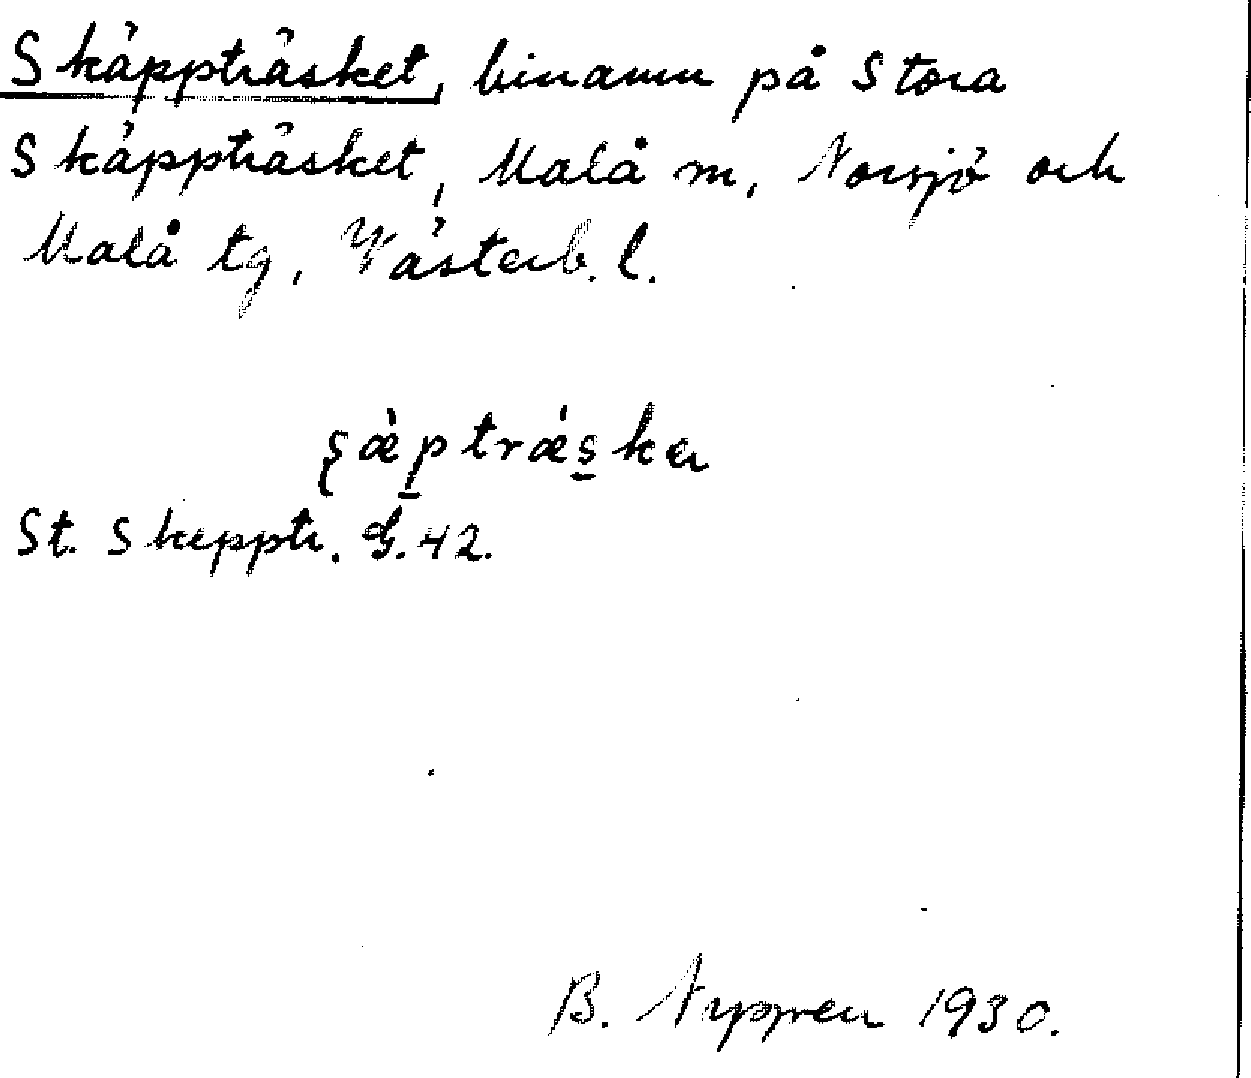 Skäppträsket, binamn på Stora
Skäppträsket, Malå sn, Norsjö och
Malå tg, Västerb. l.
St. Skepptr. G. 42.
B. Nyppren 1930.